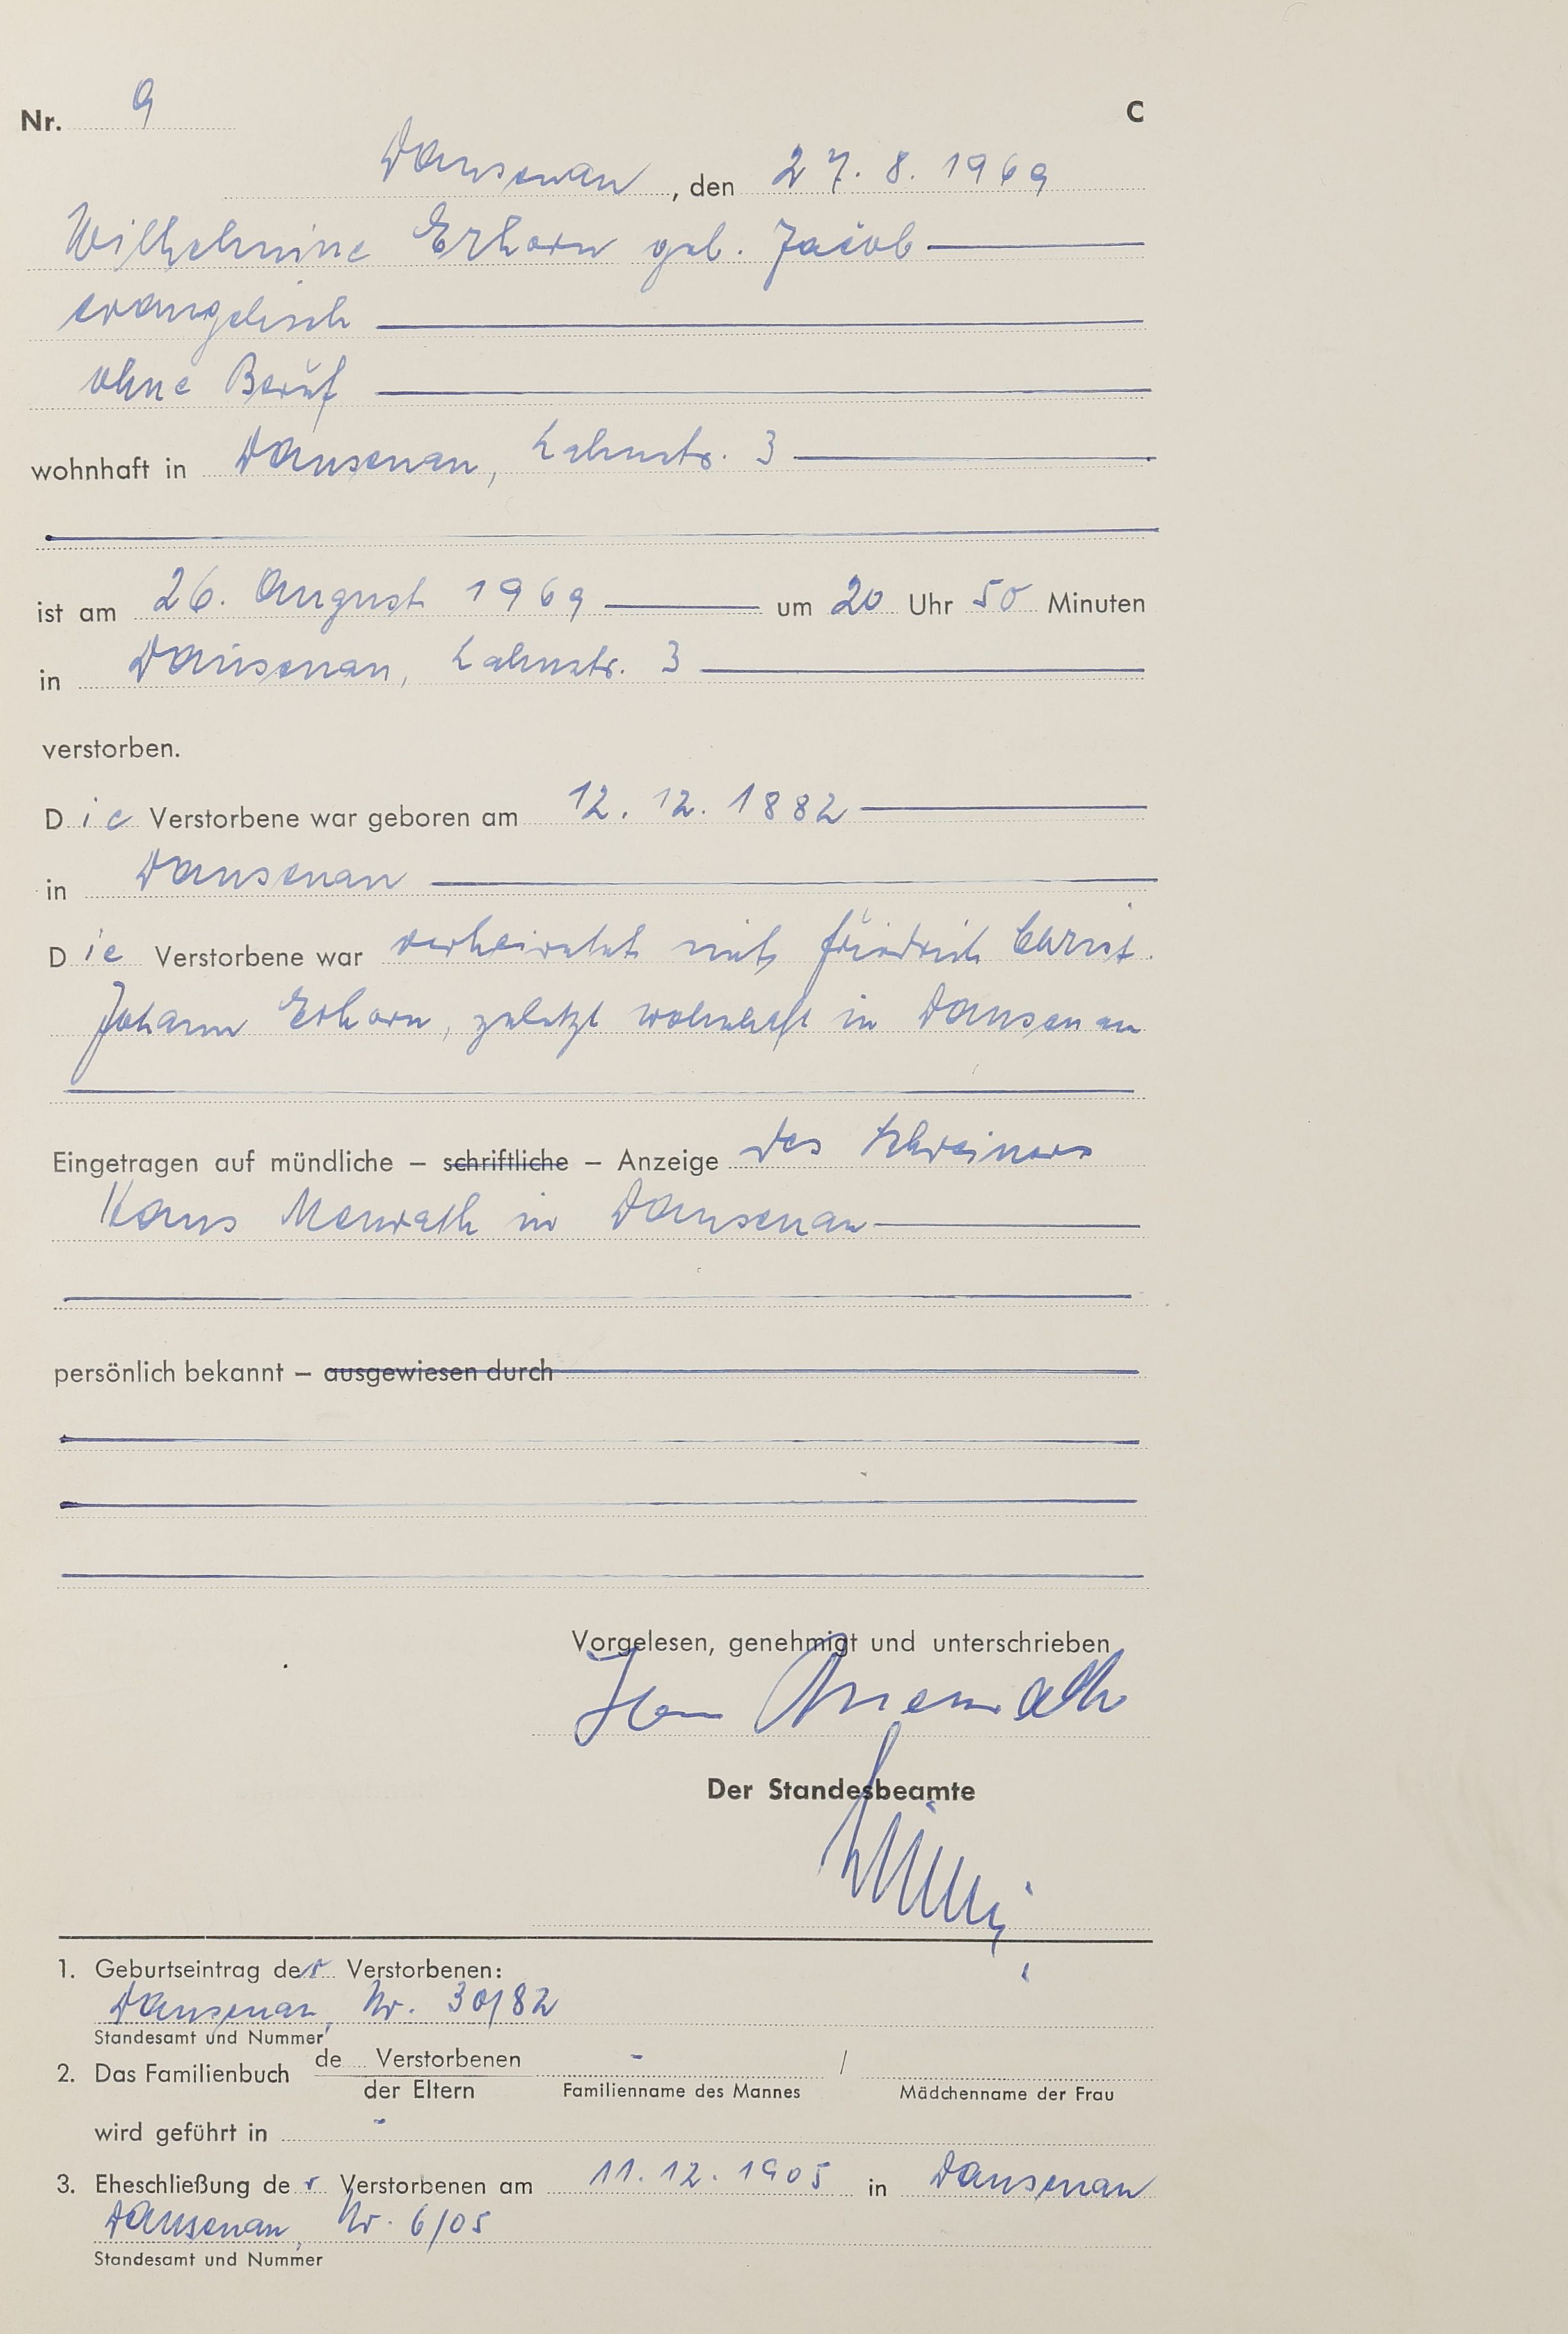 Nr. 9 C
Dausenau, den 27. 8. 1969
Wilhelmine Erhorn geb. Jacob
evangelisch
ohne Beruf
wohnhaft in Dausenau, Lahnstr. 3
ist am 26. August 1969 um 20 Uhr 50 Minuten
in Dausenau, Lahnstr. 3
verstorben.
Die Verstorbene war geboren am 12. 12. 1882
in Dausenau
Die Verstorbene war verheiratet mit Friedrich Christ.
Johann Erhorn, zuletzt wohnhaft in Dausenau
Eingetragen auf mündliche – schriftliche – Anzeige des Schreiners
Hans Menrath in Dausenau
persönlich bekannt – ausgewiesen durch
Vorgelesen, genehmigt und unterschrieben
Hans Menrath
Der Standesbeamte
1. Geburtseintrag der Verstorbenen:
Dausenau, Nr. 30/82
Standesamt und Nummer
2. Das Familienbuch de Verstorbenen - /
der Eltern Familienname des Mannes Mädchenname der Frau
wird geführt in -
3. Eheschließung der Verstorbenen am 11. 12. 1905 in Dausenau
Dausenau, Nr. 6/05
Standesamt und Nummer